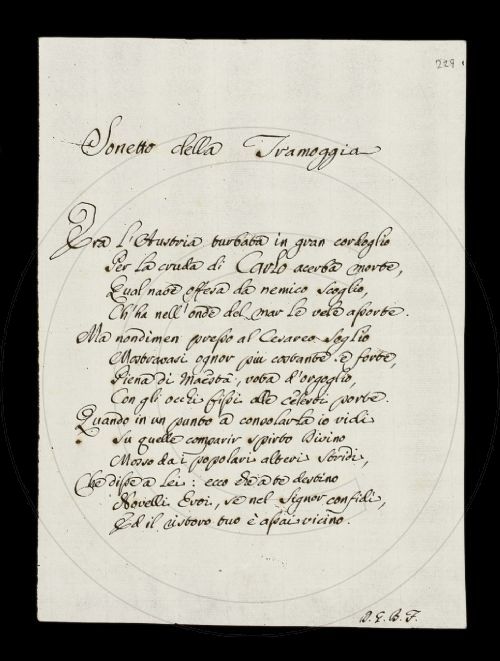 229
Sonetto della Tramoggia
Era l'Austria turbata in gran cordoglio
Per la cruda di Carlo acerba morte,
Qual nave offesa da nemico scoglio,
Ch'ha nell'onde del mar le vele assorte.
Ma nondimen presso al Cesareo Soglio
Mostravasi ognor più costante e forte,
Piena di Maestà, vota d'orgoglio,
Con gli occhi fissi alle celesti porte.
Quando in un punto a consolarla io vidi
Su quelle comparir spirto Divino
Mosso da i popolari alteri stridi,
Che disse a Lei: ecco che a te destino
Novelli Eroi, se nel Signor confidi,
Ed il ristoro tuo è assai vicino.
B. F.